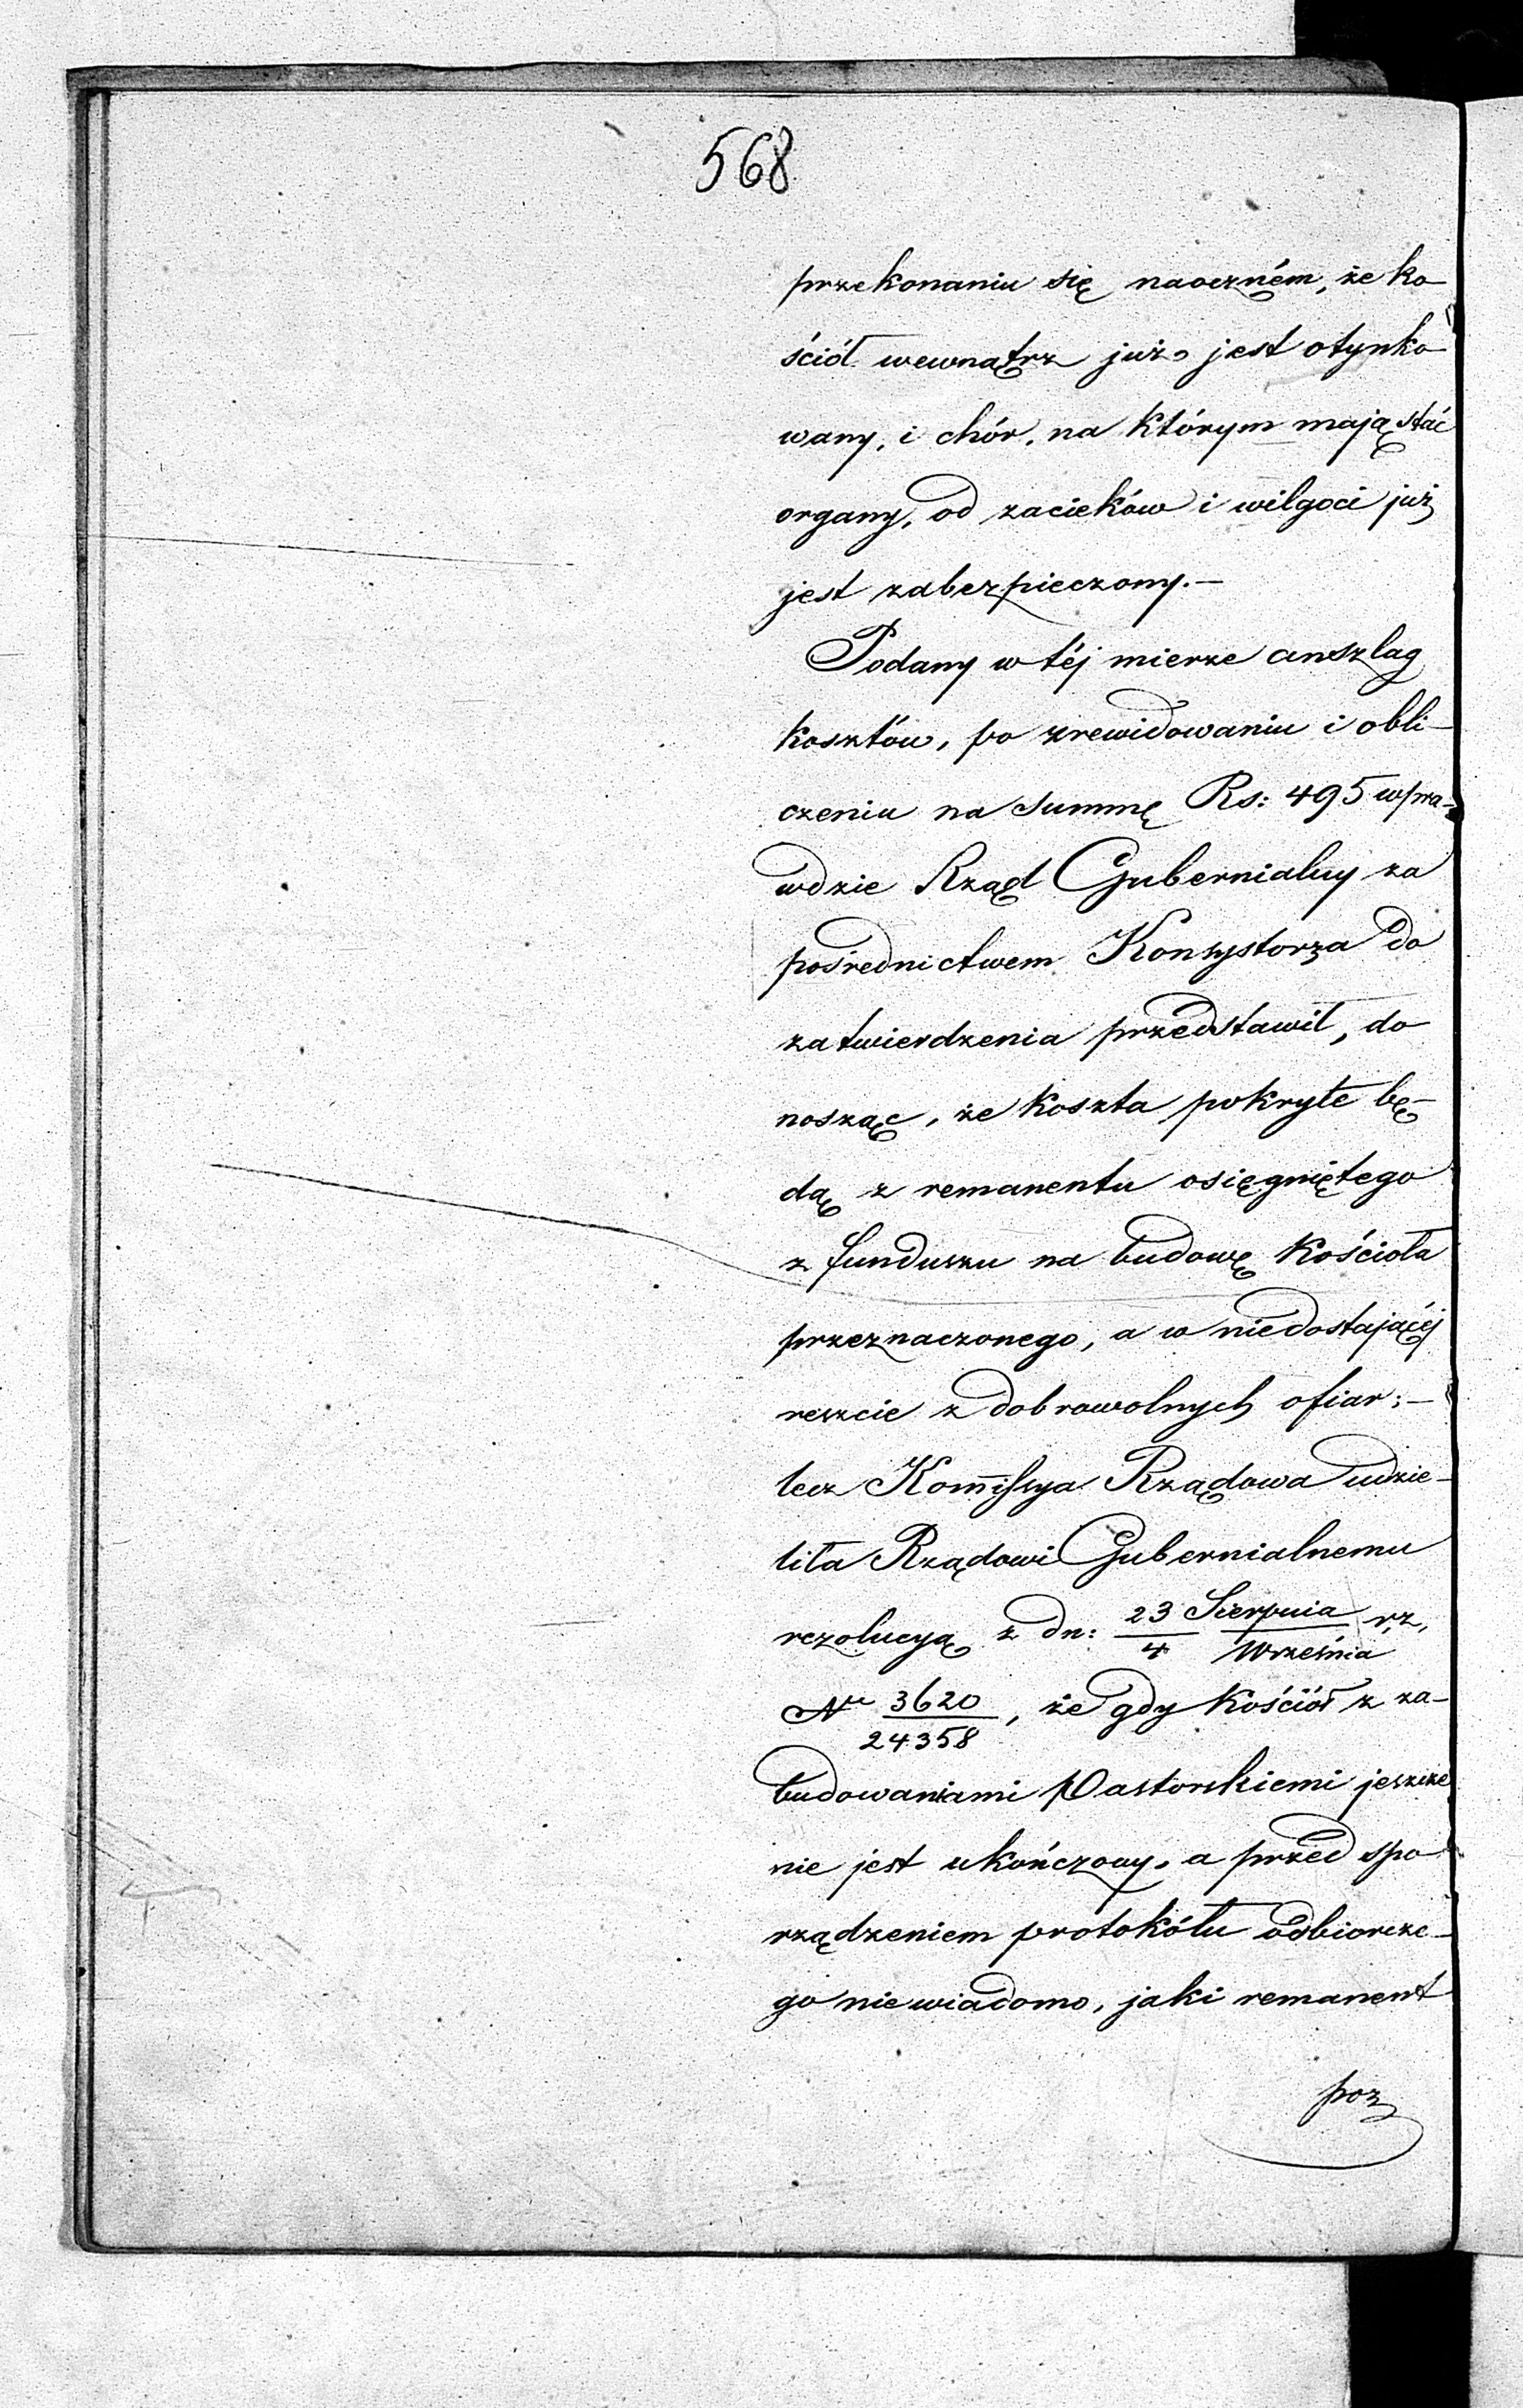 568
przekonaniu się naoczném, że ko-
ściół wewnątrz już jest otynko-
wany, i chór, na którym mają stać
organy, od zacieków i wilgoci już
jest zabezpieczony.—
Podany w téj mierze anszlag
kosztów, po zrewidowaniu i obli-
czeniu na summę Rs: 495 wpra-
wdzie Rząd Gubernialny za
pośrednictwem Konsystorza do
zatwierdzenia przedstawił, do-
nosząc, że koszta pokryte bę-
dą z remanentu osięgniętego
z funduszu na budowę Kościoła
przeznaczonego, a w niedostającéj
reszcie z dobrowolnych ofiar;—
lecz Kommissya Rządowa udzie-
liła Rządowi Gubernialnemu
rezolucyą z dn: 23 Sierpnia / 4 Września r, z,
Nr 3620 / 24358, że gdy Kościół z za-
budowaniami Pastorskiemi jeszcze
nie jest ukończony, a przed spo-
rządzeniem protokółu odbiorcze-
go nie wiadomo, jaki remanent
poz